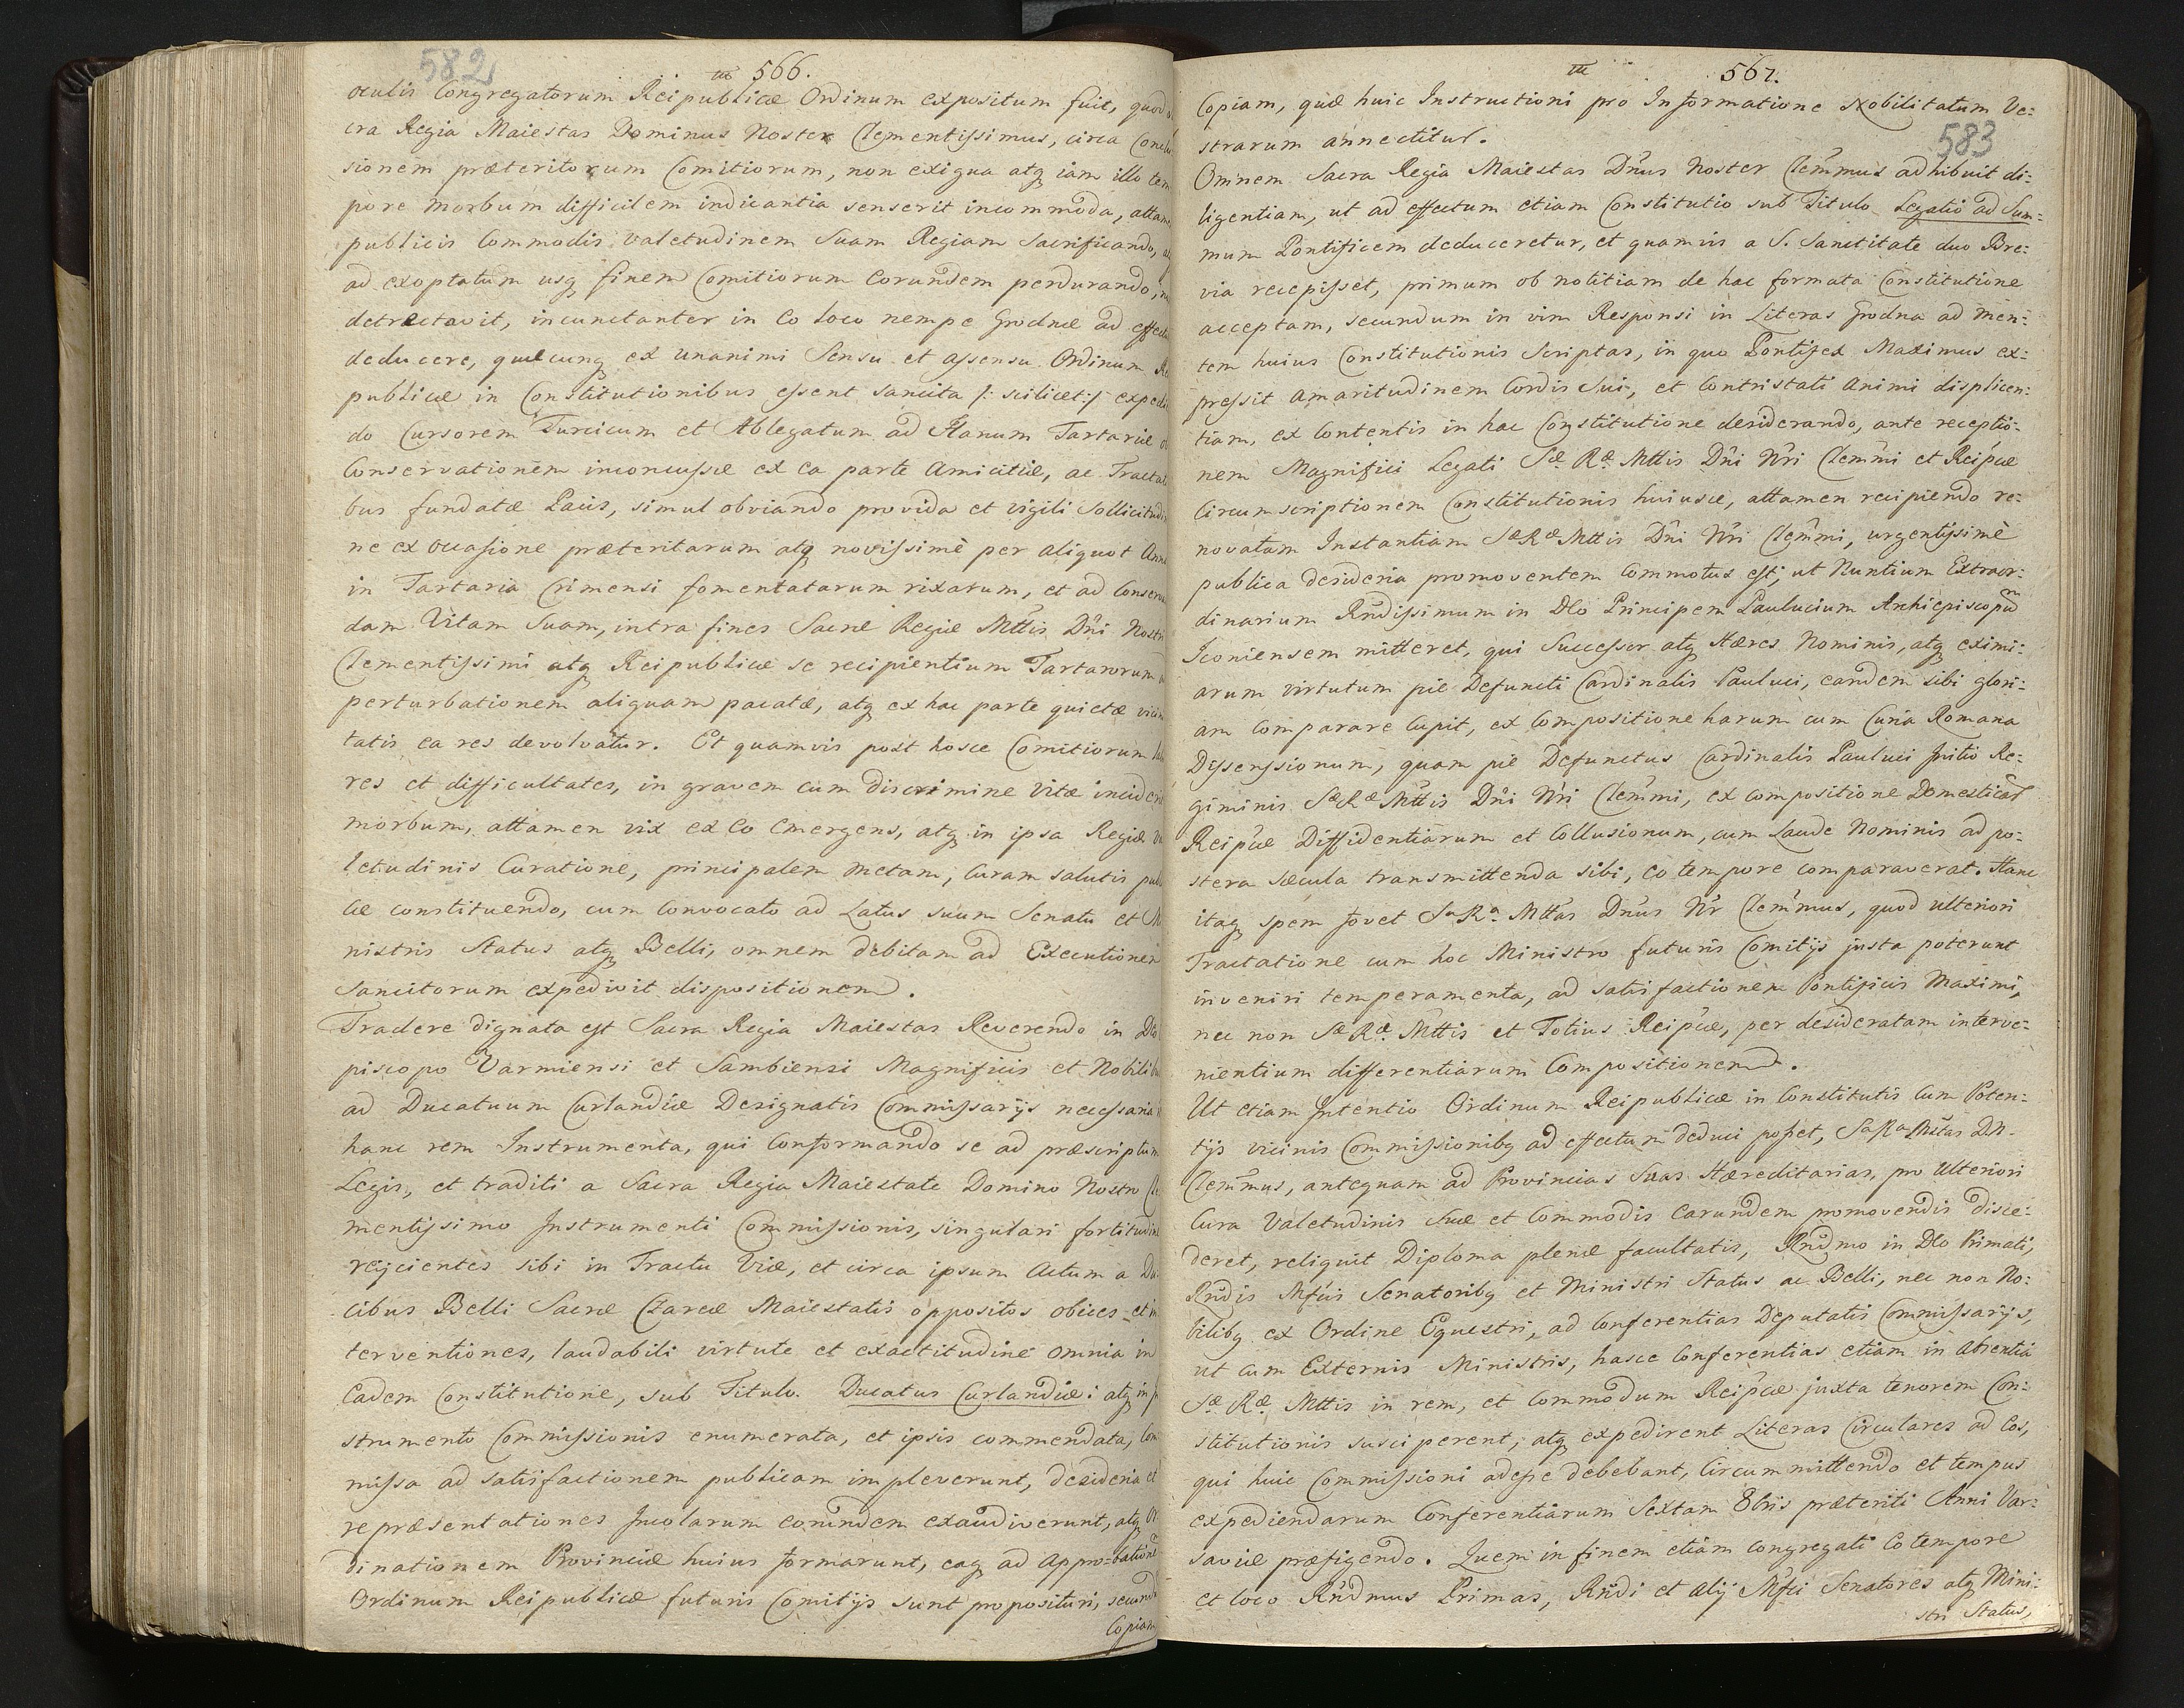 582
566.
oculis Congregatorum Reipublicæ Ordinum expositum fuit, quod
cra Regia Maiestas Dominus Noster Clementissimus, circa Conclu
sionem præteritorum Comitiorum, non exigua atq iam illo tem
pore morbum difficilem indicantia senserit incommoda, attame
publicis Commodis valetudinem Suam Regiam Sacrificando,
ad exoptatum usq finem Comitiorum Eorundem perdurando,
detrectavit, incunctanter in Eo loco nempe Grodnæ ad effectu
deducere, quæcunq ex unanimi Sensu et assensu Ordinum Re
publicæ in Constitutionibus essent sancita /: scilicet :/ expedi
do Cursorem Turcicum et Ablegatum ad Hanum Tartariæ ob
Conservationem inconcussæ ex ea parte Amicitiæ, ac Tractat
bus fundatæ Pacis, simul obviando provida et vigili Sollicitudi
ne ex occasione præteritarum atq novissimè per aliquot Anno
in Tartaria Crimensi fomentatarum rixarum, et ad Conservan
dam Vitam Suam, intra fines Sacræ Regiæ Mttis Dni Nostri
Clementissimi atq Reipublicæ se recipientium Tartarorum
perturbationem aliquam pacatæ, atq ex hac parte quietæ vicini
tatis ea res devolvatur. Et quamvis post hosce Comitiorum labo
res et difficultates, in gravem cum discrimine Vitæ incideri
morbum, attamen vix ex Eo Emergens, atq in ipsa Regiæ va
letudinis Curatione, principalem metam, Curam salutis publi
cæ constituendo, cum Convocato ad Latus suum Senatu et Mi
nistris Status atq Belli, omnem debitam ad Executionem
Sancitorum expedivit dispositionem.
Tradere dignata est Sacra Regia Maiestas Reverendo in Dlo
piscopo Varmiensi et Sambiensi Magnificis et Nobilibu
ad Ducatuum Curlandiæ Designatis Commissarijs necessaria
hanc rem Instrumenta, qui Conformando se ad præscriptum
Legis, et traditi a Sacra Regia Maiestate Domino Nostro Cle
mentissimo Instrumenti Commissionis, singulari fortitudine
reijcientes sibi in Tractu Viæ, et circa ipsum Actum a Du
cibus Belli Sacræ Czareæ Maiestatis oppositos obices et in
terventiones, laudabili virtute et exactitudine omnia in
Eadem Constitutione, sub Titulo. Ducatus Curlandiæ: atq in
strumento Commissionis enumerata, et ipsis commendata, Com
missa ad satisfactionem publicam impleverunt, desideria et
repræsentationes Incolarum eorundem exaudiverunt, atq Or
dinationem Provinciæ huius formarunt, eaq ad Approbatione
Ordinum Reipublicæ futuris Comitijs sunt proposituri, secund
Copiam
567.
583
Copiam, quæ huic Instructioni pro Informatione Nobilitatum Ve:
strarum annectitur.
Omnem Sacra Regia Maiestas Dnus Noster Clemmus adhibuit di:
ligentiam, ut ad effectum etiam Constitutio sub Titulo Legatio ad Sum:
mum Pontificem deduceretur, et quamvis a S. Sanctitate duo Bre:
via recepisset, primum ob notitiam de hac formata Constitutione
acceptam, secundum in vim Responsi in Literas Grodna ad men:
tem huius Constitutionis Scriptas, in quo Pontifex Maximus ex:
pressit Amaritudinem Cordis Sui, et Contristati Animi displicen:
tiam, ex Contentis in hac Constitutione desiderando, ante receptio:
nem Magnifici Legati Sæ Ræ Mttis Dni Nri Clemmi et Reipcæ
Circumscriptionem Constitutionis huiusce, attamen recipiendo re:
novatam Instantiam SæRæMttis Dni Nri Clemmi, urgentissimè
publica desideria promoventem Commotus est, ut Nuntium Extraor:
dinarium Rndissimum in Dlo Principem Paulucium Archiepiscopum
Iconiensem mitteret, qui Successor atq Hæres Nominis, atq eximi:
arum virtutum pie Defuncti Cardinalis Pauluci, eandem sibi glori:
am Comparare Cupit, ex Compositione harum cum Curia Romana
Dissensionum, quam pie Defunctus Cardinalis Pauluci Initio Re:
giminis SæRæMttis Dni Nri Clemmi, ex compositione Domesticar
Reipcæ Diffidentiarum et Collusionum, cum Laude Nominis ad po:
stera sæcula transmittenda sibi, Eo tempore comparaverat. Hanc
itaq spem fovet SaRa. Mttas Dnus Nr Clemmus, quod ulteriori
Tractatione cum hoc Ministro futuris Comitijs justa poterunt
inveniri temperamenta, ad satisfactionem Pontificis Maximi,
nec non Sæ Ræ. Mttis et Totius Reipcæ, per desideratam interve:
nientium differentiarum Compositionem.
Ut etiam Intentio Ordinum Reipublicæ in Constitutis Cum Poten:
tijs vicinis Commissionibq ad effectum deduci posset, SaRaMttas D.N.
Clemmus, antequam ad Provincias Suas Hæreditarias, pro Ulteriori
Cura Valetudinis Suæ et Commodis Earundem promovendis disce:
deret, reliquit Diploma plenæ facultatis, Rndmo in Dlo Primati,
Rndis Mfcis Senatoribq et Ministri Status ac Belli, nec non No:
bilibq ex Ordine Equestri, ad Conferentias Deputatis Commissarijs,
ut cum Externis Ministris, hasce Conferentias etiam in absentia
Sæ Ræ Mttis in rem, et Commodum Reipcæ juxta tenorem Con:
stitutionis susciperent, atq expedirent Literas Circulares ad Eos,
qui huic Commissioni adesse debebant, Circummittendo et tempus
expediendarum Conferentiarum Sextam 8bris præteriti Anni Var:
saviæ præfigendo. Quem in finem etiam congregati Eo tempore
et loco Rndmus Primas, Rndi et Alij Mfci Senatores atq Mini:
stri Status,